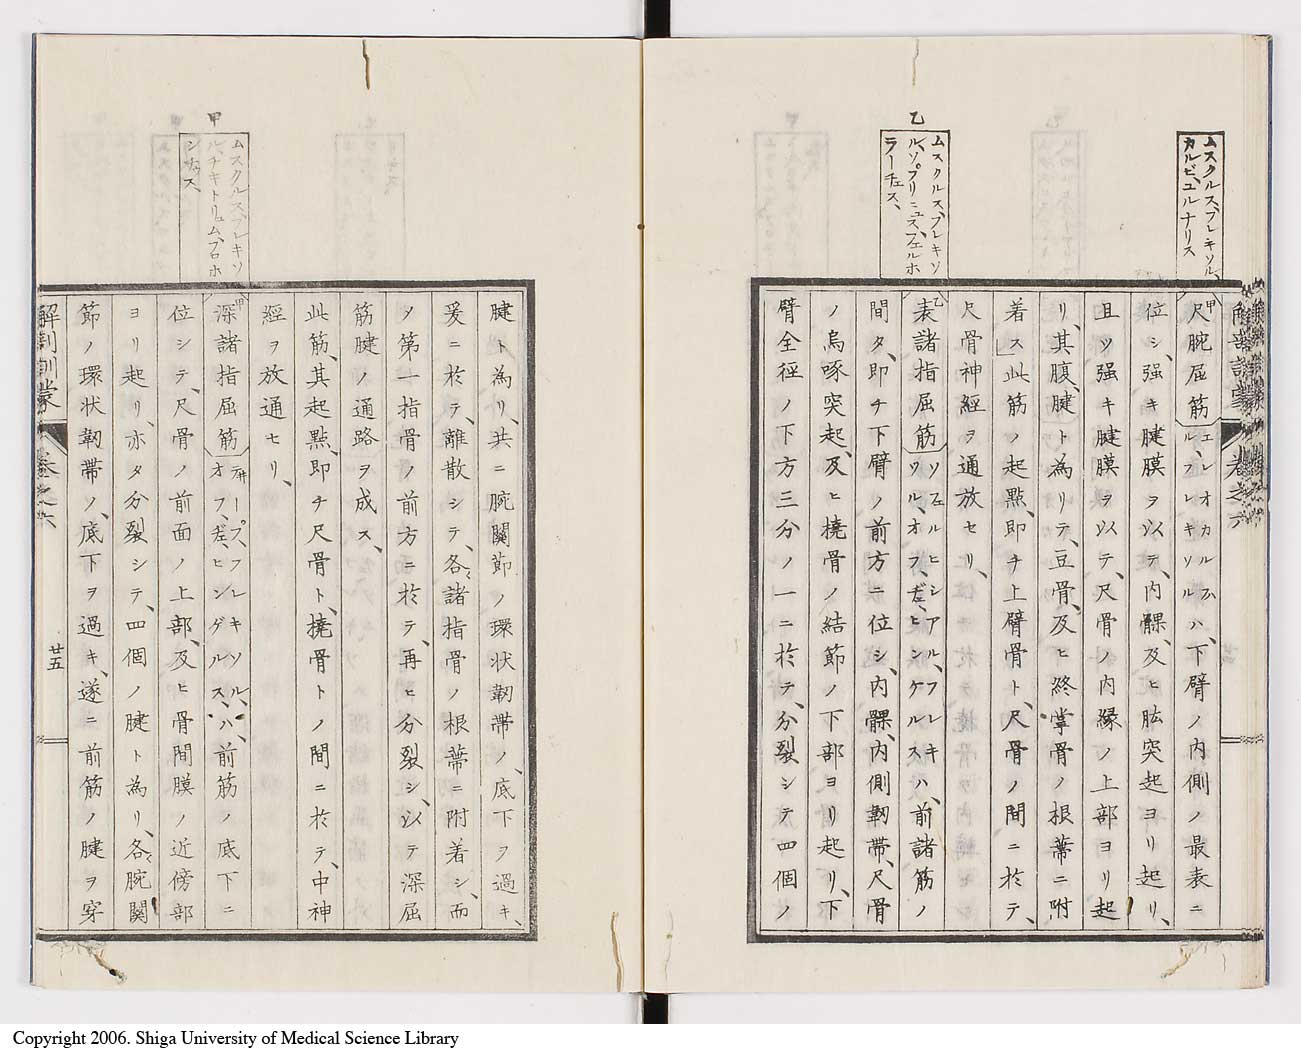 ムスクルス、フレキソル、
カルピ、ユルナリス
甲
尺腕屈筋
エレオカルム
ル、フレキソル
ハ、下臂ノ内側ノ最表ニ
位シ、强キ腱膜ヲ以テ、内髁、及ヒ肱突起ヨリ起リ、
且ツ强キ腱膜ヲ以テ、尺骨ノ内縁ノ上部ヨリ起
リ、其腹、腱ト為リテ、豆骨、及ヒ終掌骨ノ根蔕ニ附
着ス此筋ノ起點、即チ上臂骨ト、尺骨ノ間ニ於テ、
尺骨神經ヲ通放セリ、
乙
ムスクルス、フレキソ
ル、ソプリニュス、フェルホ
ラーチュス、
乙
表諸指屈筋
ソフェルヒシアル、フレキ
ソル、オフ、ゼ、ヒンケルス
ハ、前諸筋ノ
間タ、即チ下臂ノ前方ニ位シ、内髁、内側韌帯、尺骨
ノ烏啄突起、及ヒ橈骨ノ結節ノ下部ヨリ起リ、下
臂全径ノ下方三分ノ一ニ於テ、分裂シテ四個ノ
腱ト為リ、共ニ腕關節ノ環状韌帯ノ、底下ヲ過キ、
爰ニ於テ、離散シテ、各諸指骨ノ根蔕ニ附着シ、而
ノ第一指骨ノ前方ニ於テ、再ヒ分裂シ、以テ深屈
筋腱ノ通路ヲ成ス、
此筋、其起點、即チ尺骨ト、橈骨トノ間ニ於テ、中神
經ヲ放通セリ、
甲
ムスクルス、フレキソ
ル、チキトリュム、プロホ
ンヂュス、
甲
深諸指屈筋
ヂープ、フレキソル、
オフ、ゼ、ヒンダルス、
ハ、前筋ノ底下ニ
位シテ、尺骨ノ前面ノ上部、及ヒ骨間膜ノ近傍部
ヨリ起リ、亦タ分裂シテ、四個ノ腱ト為リ、各腕關
節ノ環状韌帯ノ、底下ヲ過キ、遂ニ前筋ノ腱ヲ穿
解剖訓蒙 卷之六
廿五
Copyright 2006. Shiga University of Medical Science Library